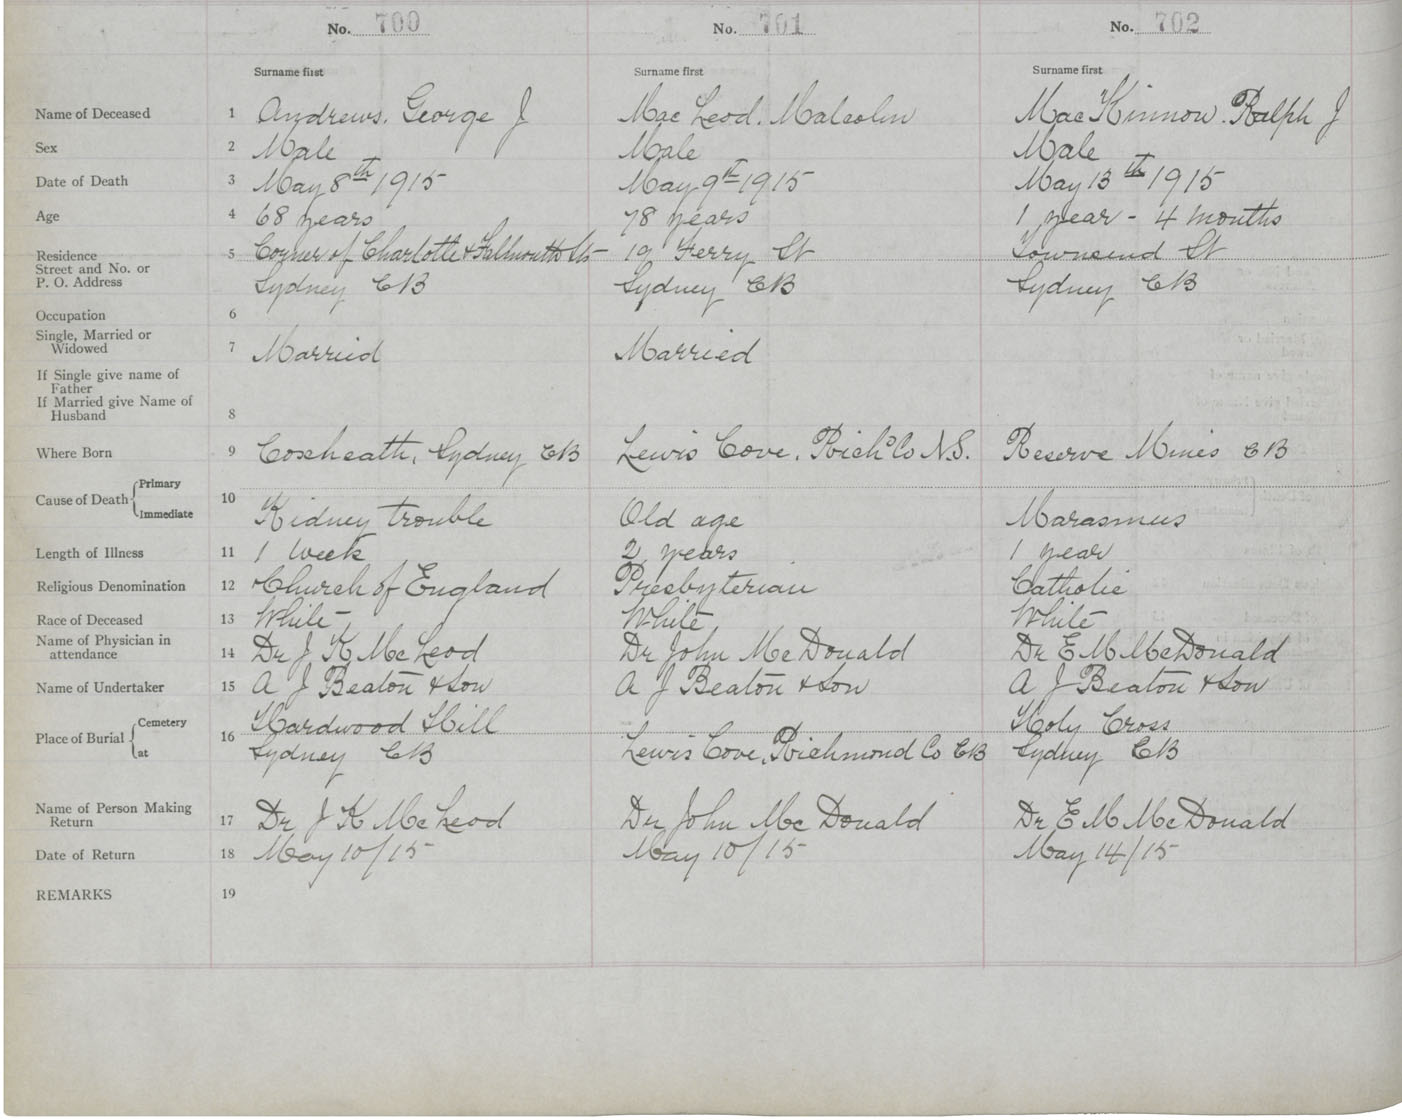 No. 700 No. 701 No. 702
Surname first Surname first Surname first
Name of Deceased 1 Andrews, George J Mac Leod, Malcolm Mac Kinnon, Ralph J
Sex 2 Male Male Male
Date of Death 3 May 8th 1915 May 9th 1915 May 13th 1915
Age 4 68 years 78 years 1 year - 4 months
Residence 5 Corner of Charlotte & Falmouth Sts 19 Ferry St Townsend St
Street and No. or
P. O. Address Sydney CB Sydney CB Sydney CB
Occupation 6
Single, Married or
Widowed 7 Married Married
If Single give name of
Father
If Married give Name of
Husband 8
Where Born 9 Coxheath, Sydney CB Lewis Cove, Richd Co N.S. Reserve Mines CB
Primary
Cause of Death 10
Immediate Kidney trouble Old age Marasmus
Length of Illness 11 1 week 2 years 1 year
Religious Denomination 12 Church of England Presbyterian Catholic
Race of Deceased 13 White White White
Name of Physician in
attendance 14 Dr J K McLeod Dr John McDonald Dr E M McDonald
Name of Undertaker 15 A J Beaton & Son A J Beaton & Son A J Beaton & Son
Cemetery Hardwood Hill Holy Cross
Place of Burial 16
at Sydney CB Lewis Cove, Richmond Co CB Sydney CB
Name of Person Making
Return 17 Dr J K McLeod Dr John McDonald Dr E M McDonald
Date of Return 18 May 10/15 May 10/15 May 14/15
REMARKS 19